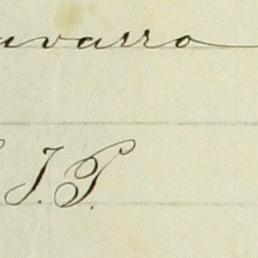 avarro
J.P.